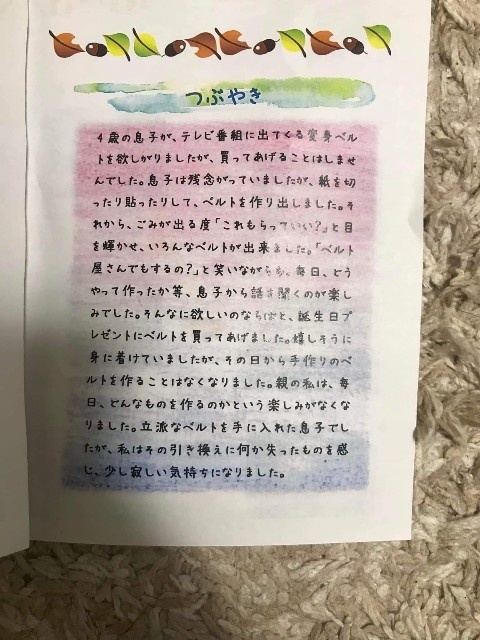 つぶやき
４歳の息子が、テレビ番組に出てくる変身ベル
トを欲しがりましたが、買ってあげることはしませ
んでした。息子は残念がっていましたが、紙を切
ったり貼ったりして、ベルトを作り出しました。そ
れから、ごみが出る度「これもらっていい？」と目
を輝かせ、いろんなベルトが出来ました。「ベルト
屋さんでもするの？」と笑いながらも、毎日、どう
やって作ったか等、息子から話を聞くのが楽し
みでした。そんなに欲しいのならばと、誕生日プ
レゼントにベルトを買ってあげました。嬉しそうに
身に着けていましたが、その日から手作りのベ
ルトを作ることはなくなりました。親の私は、毎
日、どんなものを作るのかという楽しみがなくな
りました。立派なベルトを手に入れた息子でし
たが、私はその引き換えに何か失ったものを感
じ、少し寂しい気持ちになりました。